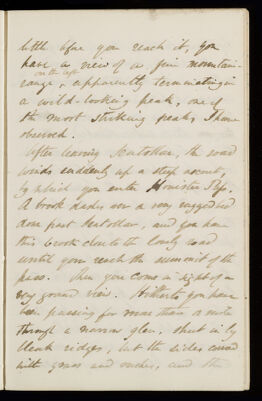 little before you reach it, you
have a view of a fine mountain-
on the left
range, apparently terminating in
a wild-looking peak, one of
the most striking peaks I have
observed.
After leaving Seatollar, the road
winds suddenly up a steep ascent,
by which you enter Honister Pass.
A brook dashes over a very rugged bed
down past Seatollar, and you have
this brook close to the lonely road
until you reach the summit of the
pass. Then you come in sight of a
very grand view. Hitherto you have
been passing for more than a mile
through a narrow glen, shut in by
bleak ridges, but the sides covered
with grass and rushes, and the